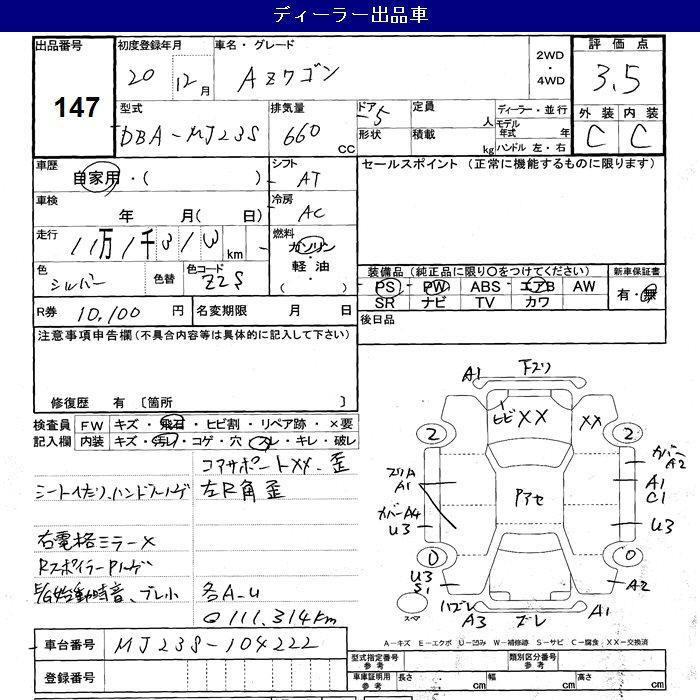 ディーラー出品車
出品番号
147
初度登録年月
20 12月
車名・グレード
AZワゴン
2WD
・
4WD
評価点
3.5
外装 内装
C C
型式
DBA-MJ23S
排気量
660 CC
ドア
5
形状
定員
人
積載
kg
ディーラー・並行
モデル年式 年
ハンドル 左・右
車歴
自家用・( )
シフト
AT
セールスポイント (正常に機能するものに限ります)
車検
年 月( 日)
冷房
AC
走行
11万1千313km
燃料
ガソリン
・
軽・油
・
( )
色
シルバー
色替
色コード
Z2S
装備品 (純正品に限り○をつけてください)
PS・PW・ABS・エアB・AW
SR ナビ TV カワ
新車保証書
有・無
R券 10,100 円
名変期限 月 日
後日品
注意事項申告欄(不具合内容等は具体的に記入して下さい)
修復歴 有 〔箇所 〕
検査員記入欄
FW キズ・飛石・ヒビ割・リペア跡・×要
内装 キズ・汚レ・コゲ・穴・スレ・キレ・破レ
コアサポートXX、歪
シートへたり、ハンドルハゲ
左Fr角歪
右電格ミラー×
RスポイラーPハゲ
E/G始動時音、ブレ小
各A-U
◎111,314km
車台番号 MJ23S-104222
登録番号
A1
下ズリ
ヒビXX
XX
2
2
カバーA2
ズリA
A1
A1
C1
Pアセ
カバーA4
U3
U3
0
0
U3
S1
A2
スペア
ハズレ
A3
ズレ
A1
A-キズ E-エクボ U-凹み W-補修跡 S-サビ C-腐食 XX-交換済
型式指定番号
参考
類別区分番号
参考
車庫証明用
参考
長さ cm
幅 cm
高さ cm